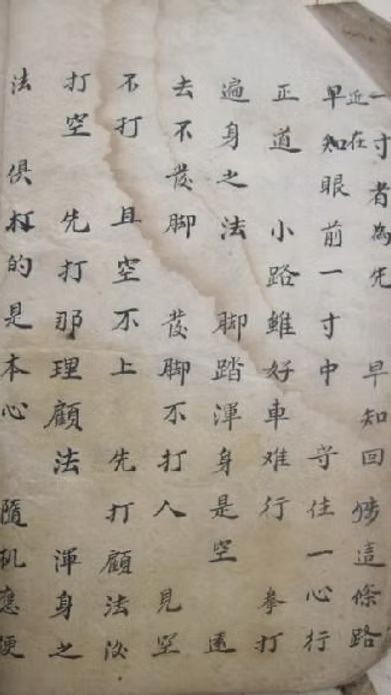 一寸者為先 早知回這條路
近在
早知眼前一寸中 守住一心行
正道 小路雖好車难行 拳打
遍身之法 脚踏渾身是空 遠
去不發脚 發脚不打人 見空
不打 且空不上 先打顧法
打空 先打那理顧法 渾身之
法 俱打的是本心 隨机應便